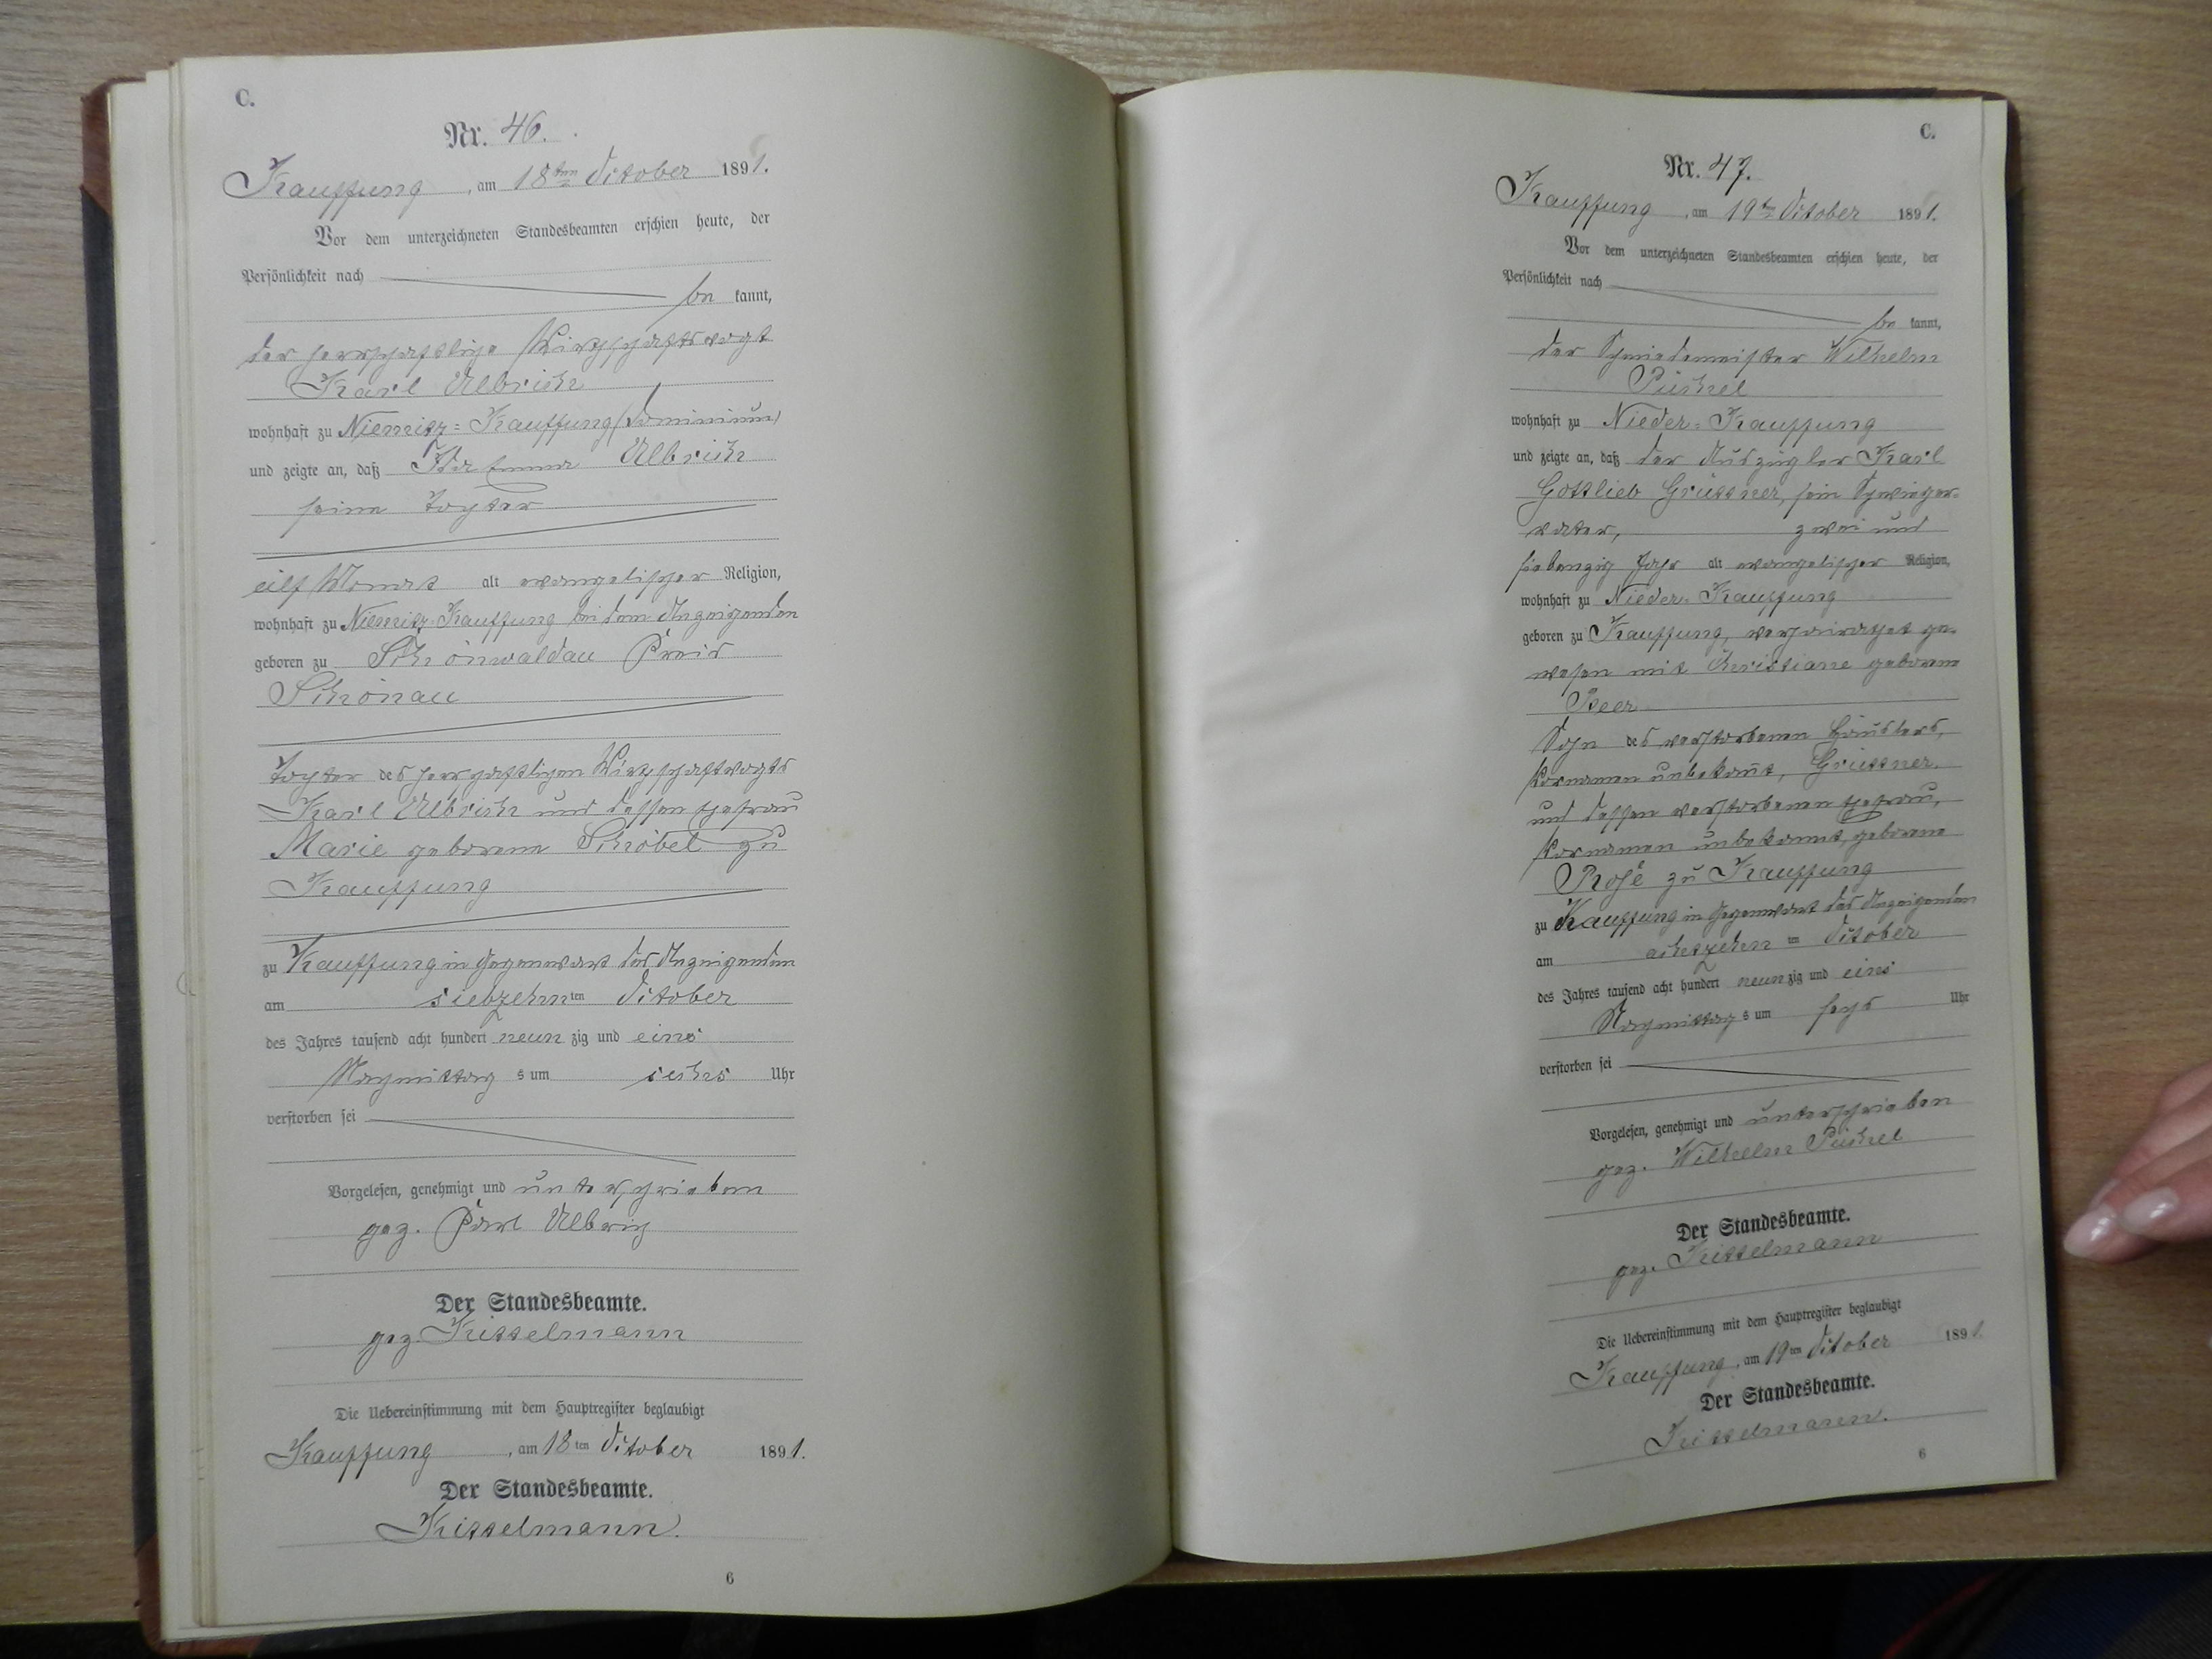 C.
Nr. 46.
Kauffung, am 18ten October 1891.
Vor dem unterzeichneten Standesbeamten erschien heute, der
Persönlichkeit nach
be kannt,
der herrschaftliche Wirthschaftsvogt
Karl Ulbrich
wohnhaft zu Niemitz=Kauffung (Dominium)
und zeigte an, daß Ida Emma Ulbrich
seine Tochter
eilf Monat alt evangelischer Religion,
wohnhaft zu Niemitz-Kauffung bei dem Anzeigenden
geboren zu Schönwaldau Kreis
Schönau
Tochter des herrschaftlichen Wirthschaftsvogts
Karl Ulbrich und dessen Ehefrau
Marie geborene Schröbel zu
Kauffung
zu Kauffung in Gegenwart des Anzeigenden
am siebzehnten October
des Jahres tausend acht hundert neunzig und eins
Nachmittags um sechs Uhr
verstorben sei
Vorgelesen, genehmigt und unterschrieben
gez. Karl Ulbrich
Der Standesbeamte.
gez. Kisselmann
Die Uebereinstimmung mit dem Hauptregister beglaubigt
Kauffung, am 18ten October 1891.
Der Standesbeamte.
Kisselmann.
6
C.
Nr. 47.
Kauffung, am 19ten October 1891.
Vor dem unterzeichneten Standesbeamten erschien heute, der
Persönlichkeit nach
be kannt,
der Schmiedemeister Wilhelm
Püschel
wohnhaft zu Nieder=Kauffung
und zeigte an, daß der Auszügler Karl
Gottlieb Grüssner, sein Schwieger-
vater, zwei und
siebenzig Jahr alt evangelischer Religion,
wohnhaft zu Nieder-Kauffung
geboren zu Kauffung, verheirathet ge-
wesen mit Christiane geborene
Beer
Sohn des verstorbenen Häuslers,
Vornamen unbekannt, Grüssner.
und dessen verstorbenen Ehefrau,
Vornamen unbekannt, geborene
Rose zu Kauffung
zu Kauffung in Gegenwart des Anzeigenden
am achtzehn ten October
des Jahres tausend acht hundert neunzig und eins
Nachmittags um sechs Uhr
verstorben sei
Vorgelesen, genehmigt und unterschrieben
gez. Wilhelm Püschel
Der Standesbeamte.
gez. Kisselmann
Die Uebereinstimmung mit dem Hauptregister beglaubigt
Kauffung, am 19ten October 1891.
Der Standesbeamte.
Kisselmann.
6